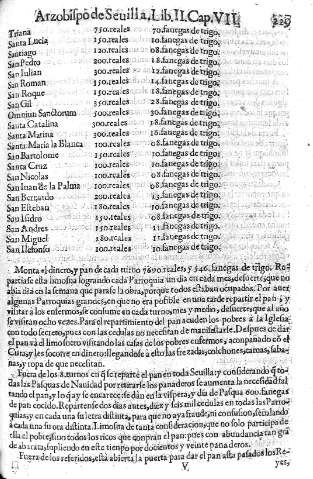 Arzobispo de Seuilla, Lib. II. Cap. VII. 229
Triana 750.reales 70.fanegas de trigo.
Santa Lucia 150.reales 10.fanegas de trigo.
Santiago 120.reales fanegas de trigo.
San Pedro 200.reales fanegas de trigo.
San Iulian 200.reales 12.fanegas de trigo.
San Roman 150.reales 14.fanegas de trigo.
San Roque 150.reales fanegas de trigo.
San Gil 350.reales 28.fanegas de trigo.
Omnium Sanctorum 300.reales 30.fanegas de trigo.
Santa Catalina 300.reales fanegas de trigo.
Santa Marina 300.reales fanegas de trigo.
Santa Maria la Blanca 100.reales 08.fanegas de trigo.
San Bartolome 130.reales 10.fanegas de trigo.
Santa Cruz 100.reales 10.fanegas de trigo.
San Nicolas 100.reales 08.fanegas de trigo.
San Iuan de la Palma 100.reales 08.fanegas de trigo.
San Bernardo 200.reales fanegas de trigo.
San Esteban 180.reales 10.fanegas de trigo.
San Isidro 150.reales 08.fanegas de trigo.
San Andres 150.reales fanegas de trigo.
San Miguel 180.reales 11.fanegas de trigo.
San Ildefonso 100.reales 10.fanegas de trigo.
Monta el dinero, y pan de cada turno 7690.reales, y 546. fanegas de trigo. Re-
partiase esta limosna logrando cada Parroquia un dia en cada mes, de suerte, que no
auia dia en la semana que parasse la obra, porque todos estauan ocupados. Por auer
algunas Parroquias grandes, en que no era possible en una tarde repartir el pan, y
visitar a los enfermos, se consume en cada turno mes y medio, de suerte, que al año
se visitan ocho vezes. Para el repartimiento del pan acuden los pobres a la Iglesia
con todo secreto, pues con las cedulas no necessitan de manifestarse. Despues de dar
el pan và el limosnero visitando las casas de los pobres enfermos, acompañado cō el
Cura, y les socorre en dinero llegandose a esto las frezadas, colchones, camas, saba-
nas, y ropa de que necessitan.
Fuera de los 8.turnos en q̄ se reparte el pan en toda Seuilla, y considerando q̄ to-
das las Pasquas de Nauidad por retirarse los panaderos se aumenta la necessidad fal-
tando el pan, y lo q̄ ay se encarece, se dàn en la vispera, y dia de Pasqua 600.fanegas
de pan cozido. Repartense dos dias antes, diez y seis mil cedulas en todas las Parro-
quias, y en cada una su letra distinta, para que no aya fraude, ni confusion, señalando
a cada una su ora distinta. Limosna de tanta consideracion, que no solo participa de
ella el pobre, sino todos los ricos que compran el pan: pues con abundancia tan grā-
de abarata, supliendo en este tiempo por docientos y veinte panaderos.
Fuera de los referidos, està abierta la puerta para dar el pan asta passados los Re-
V. yes,